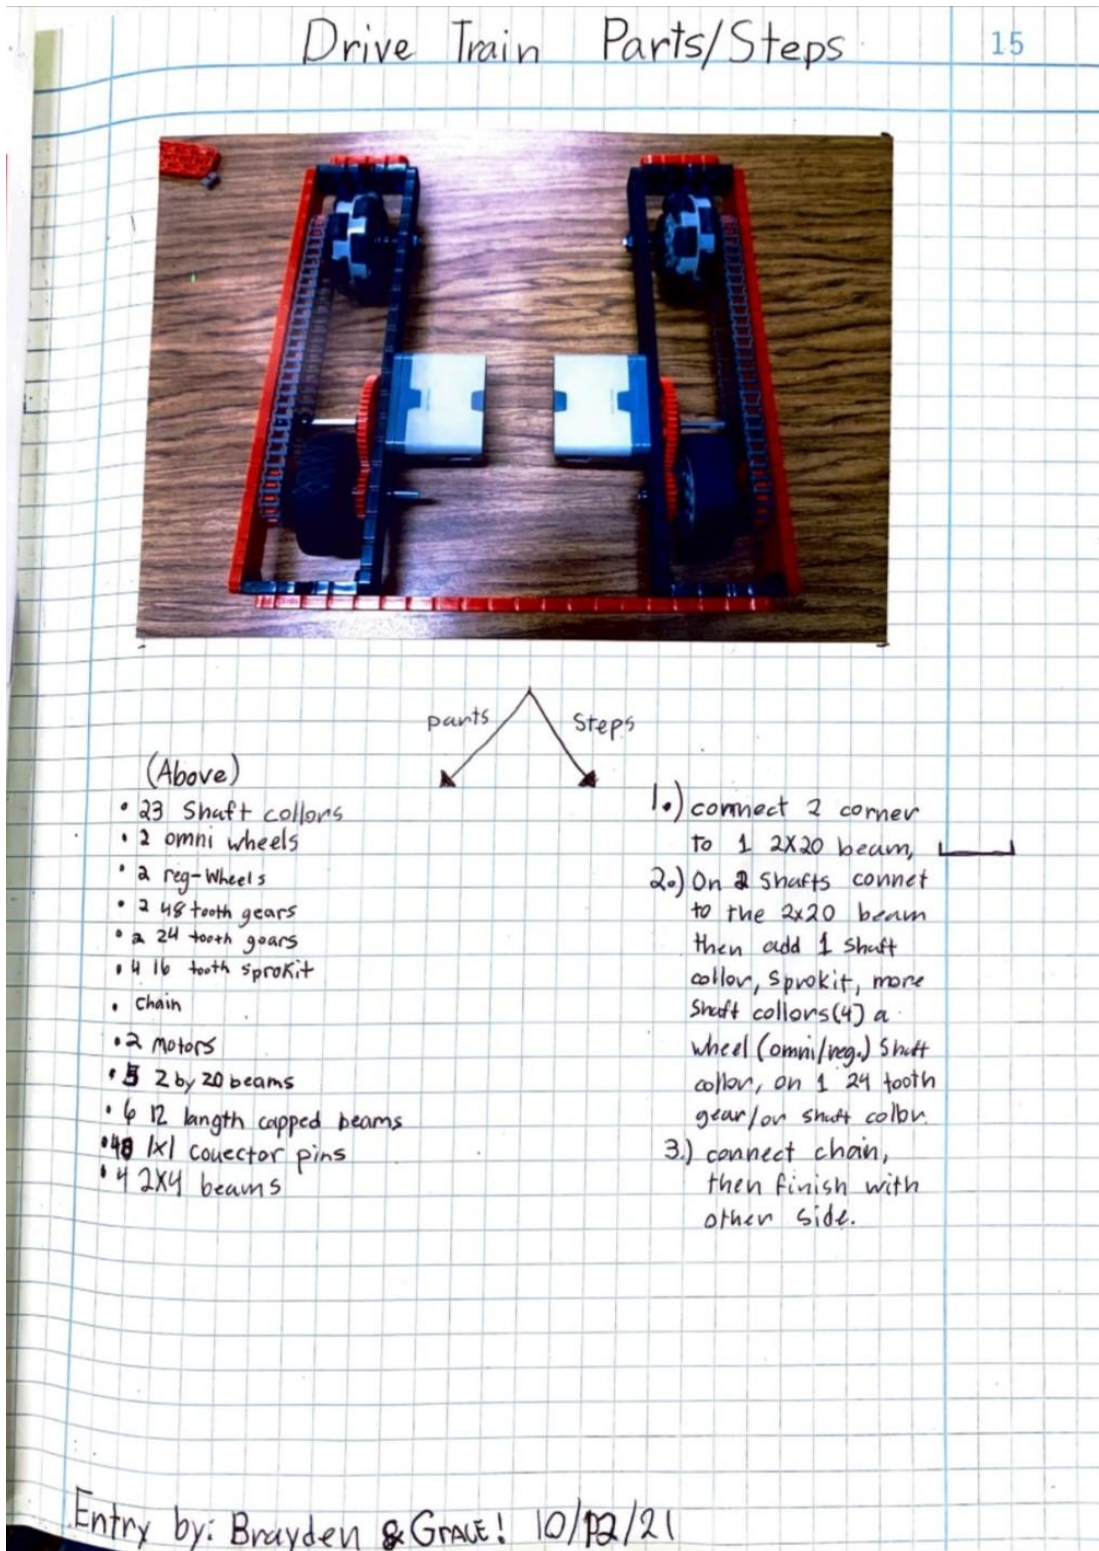 Drive Train Parts/Steps
15
parts
Steps
(Above)
• 23 Shaft collors
• 2 omni wheels
• 2 reg-wheels
• 2 48 tooth gears
• 2 24 tooth goars
• 4 16 tooth sprokit
• Chain
• 2 motors
• 5 2 by 20 beams
• 6 12 langth capped beams
• 48 1x1 couector pins
• 4 2X4 beams
1.) connect 2 corner
to 1 2X20 beam,
2.) On 2 shafts connet
to the 2x20 beam
then add 1 shaft
collor, sprokit, more
Shaft collors(4) a
wheel (omni/reg.) Shaft
collor, on 1 24 tooth
gear/or shaft collor.
3.) connect chain,
then finish with
other side.
Entry by: Brayden & GRACE! 10/12/21